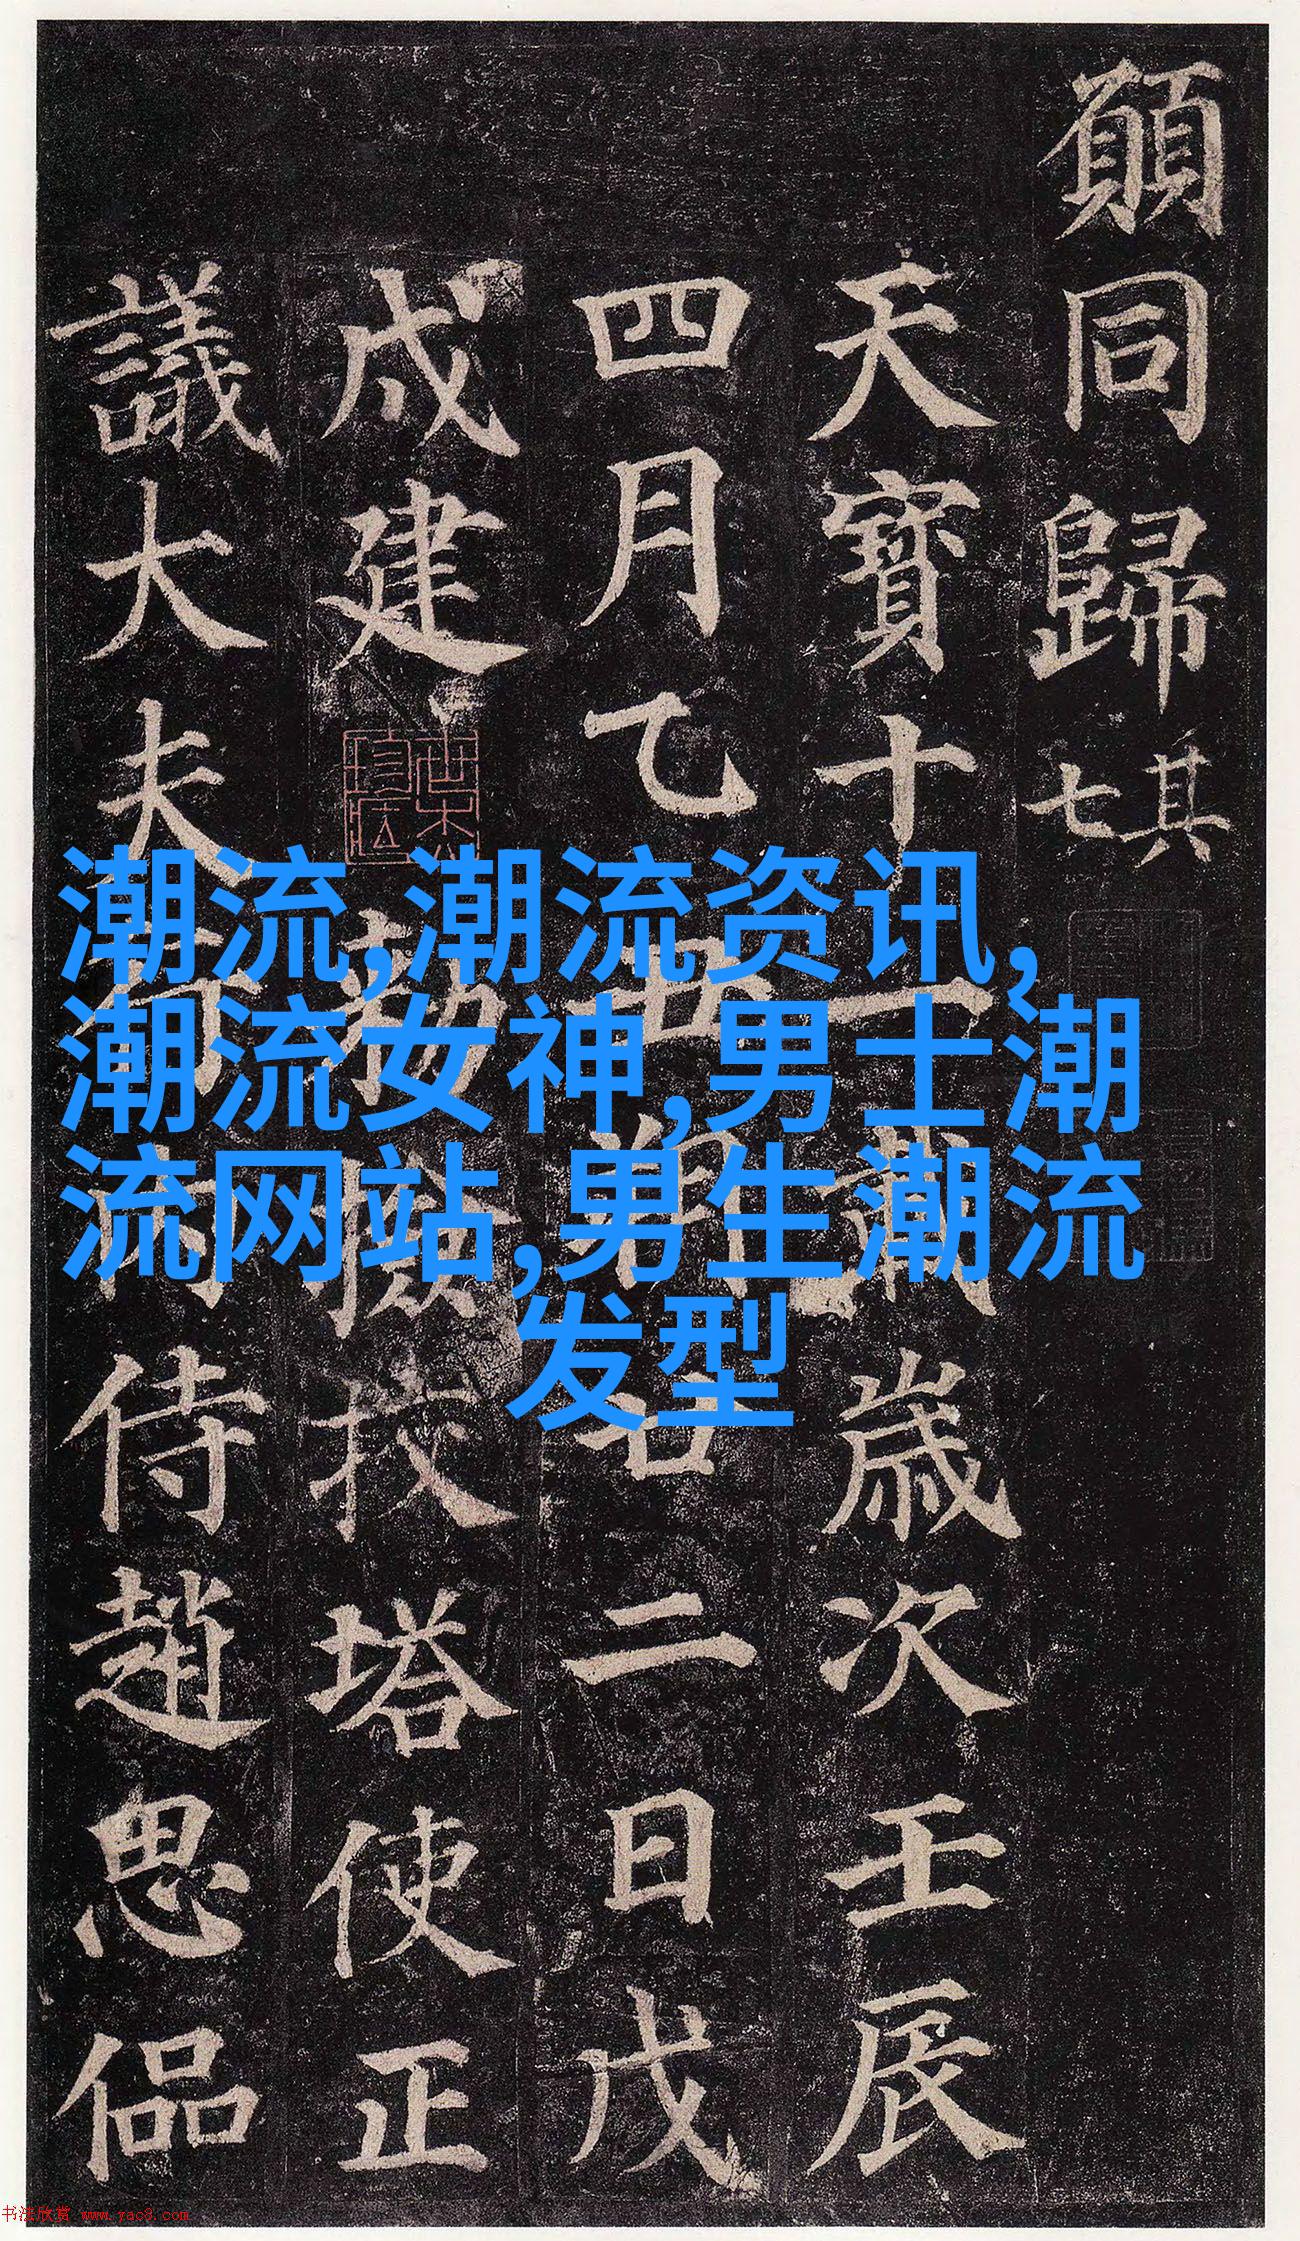 願同歸其七
天寶十一載歲次壬辰
四月乙丑朔廿二日戊
戌建勅檢挍塔使正
議大夫行內侍趙思偘
潮流,潮流资讯,
潮流女神,男士潮
流网站,男生潮流
发型
书法欣赏 www.yac8.com